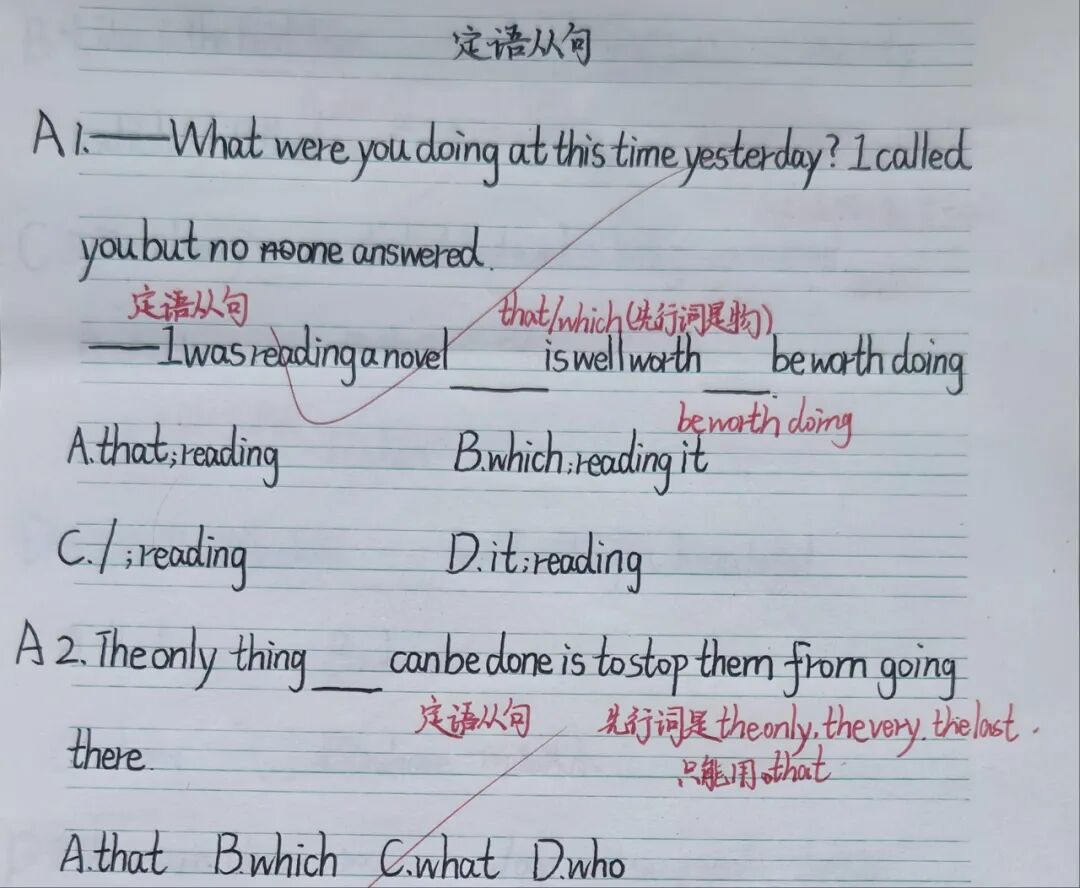 定语从句
A 1.——What were you doing at this time yesterday? I called
you but no noone answered.
定语从句 that/which(先行词是物)
——I was reading a novel ____ is well worth ____ be worth doing
be worth doing
A.that;reading B.which;reading it
C./;reading D.it;reading
A 2. The only thing ___ can be done is to stop them from going
定语从句 先行词是the only, the very, the last.
there.
只能用that
A.that B.which C.what D.who